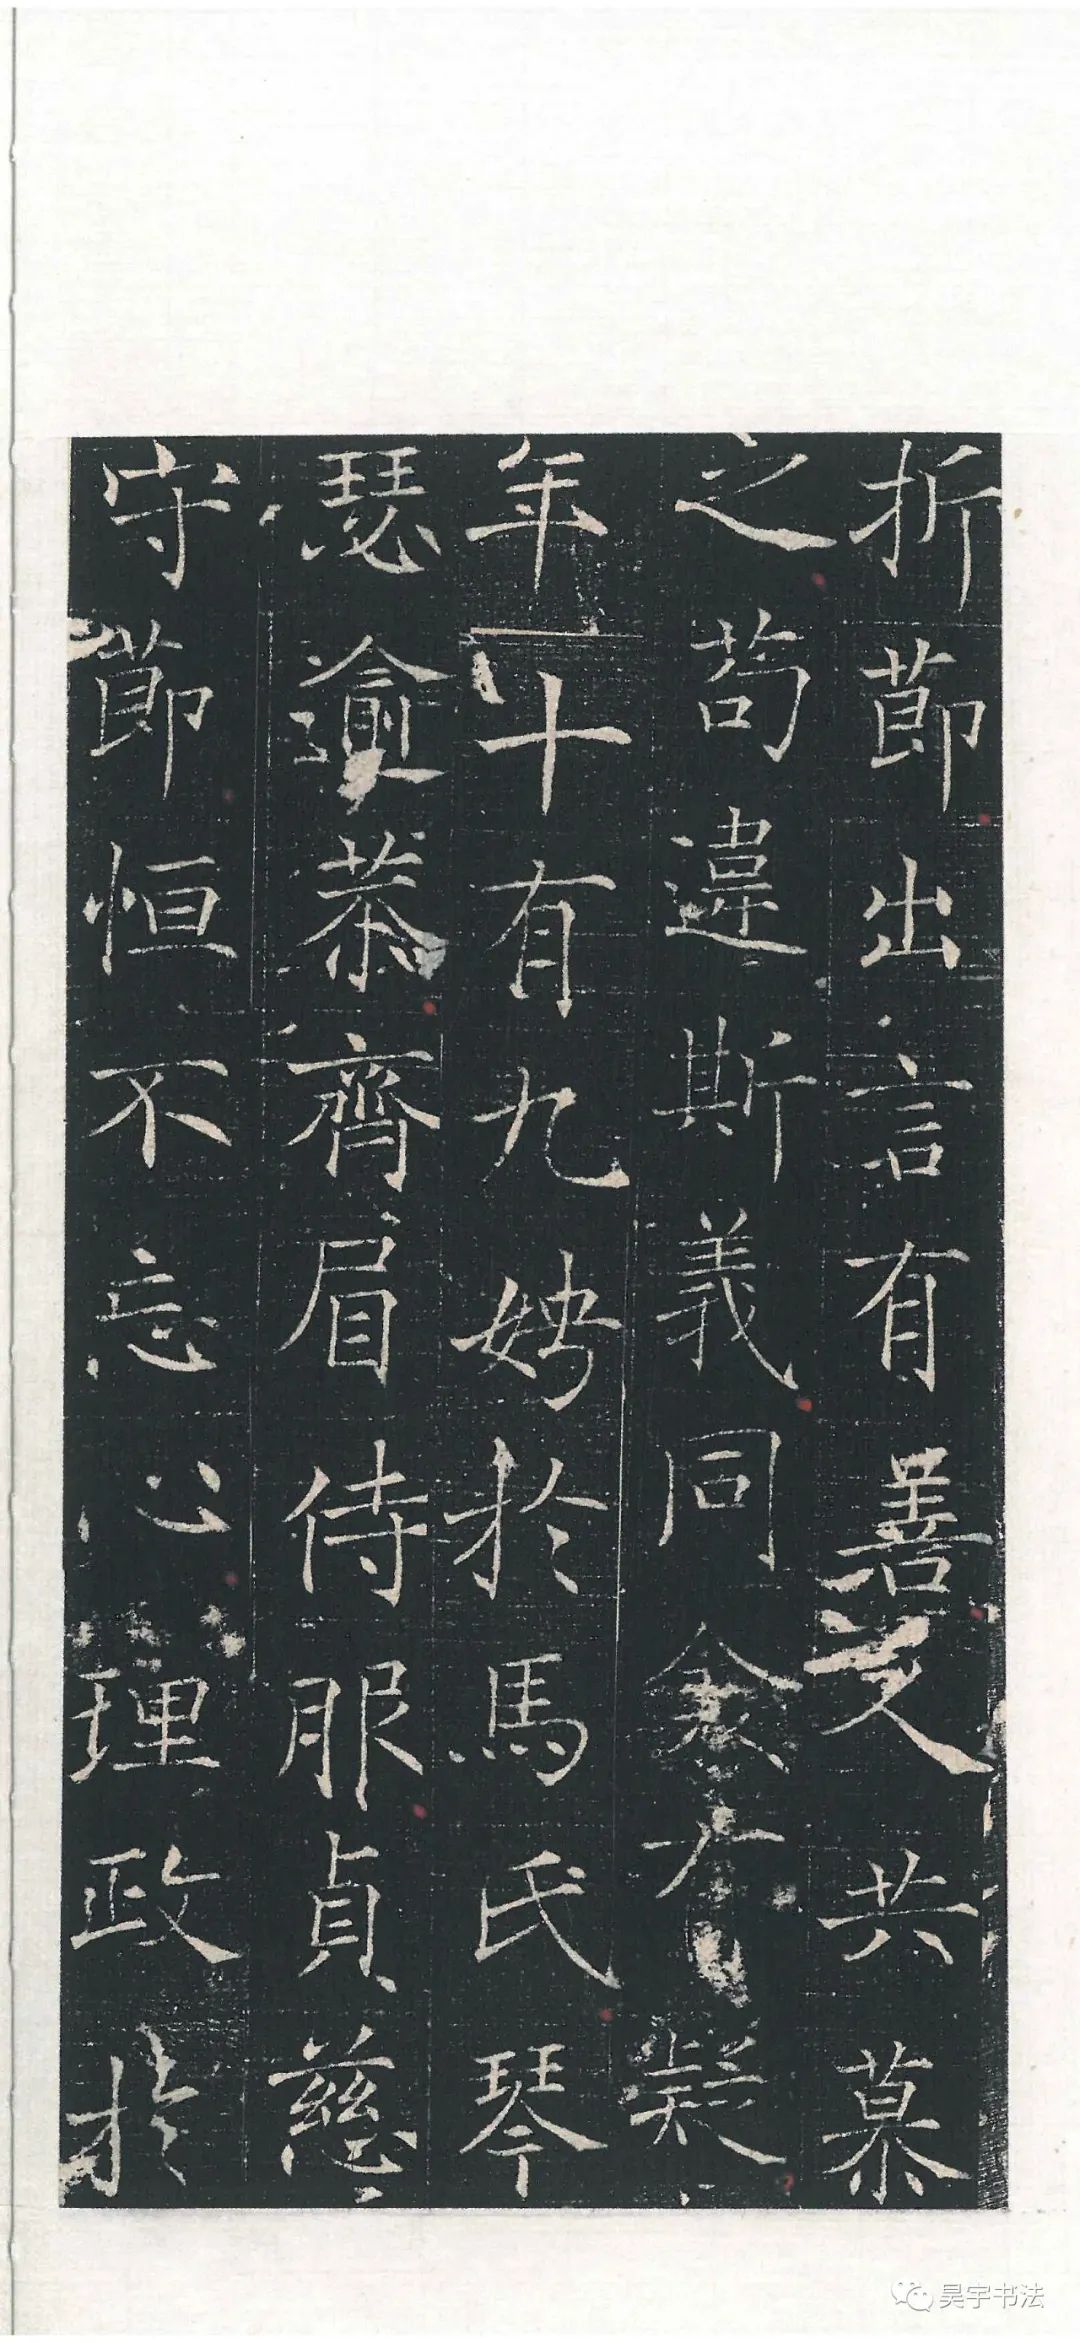 折節出言有善㳟共慕
之苟違斯義同衾不凝
年十有九娉於馬氏琴
瑟逾恭齊眉侍服貞慈
守節恒不忘心理政於
昊宇书法